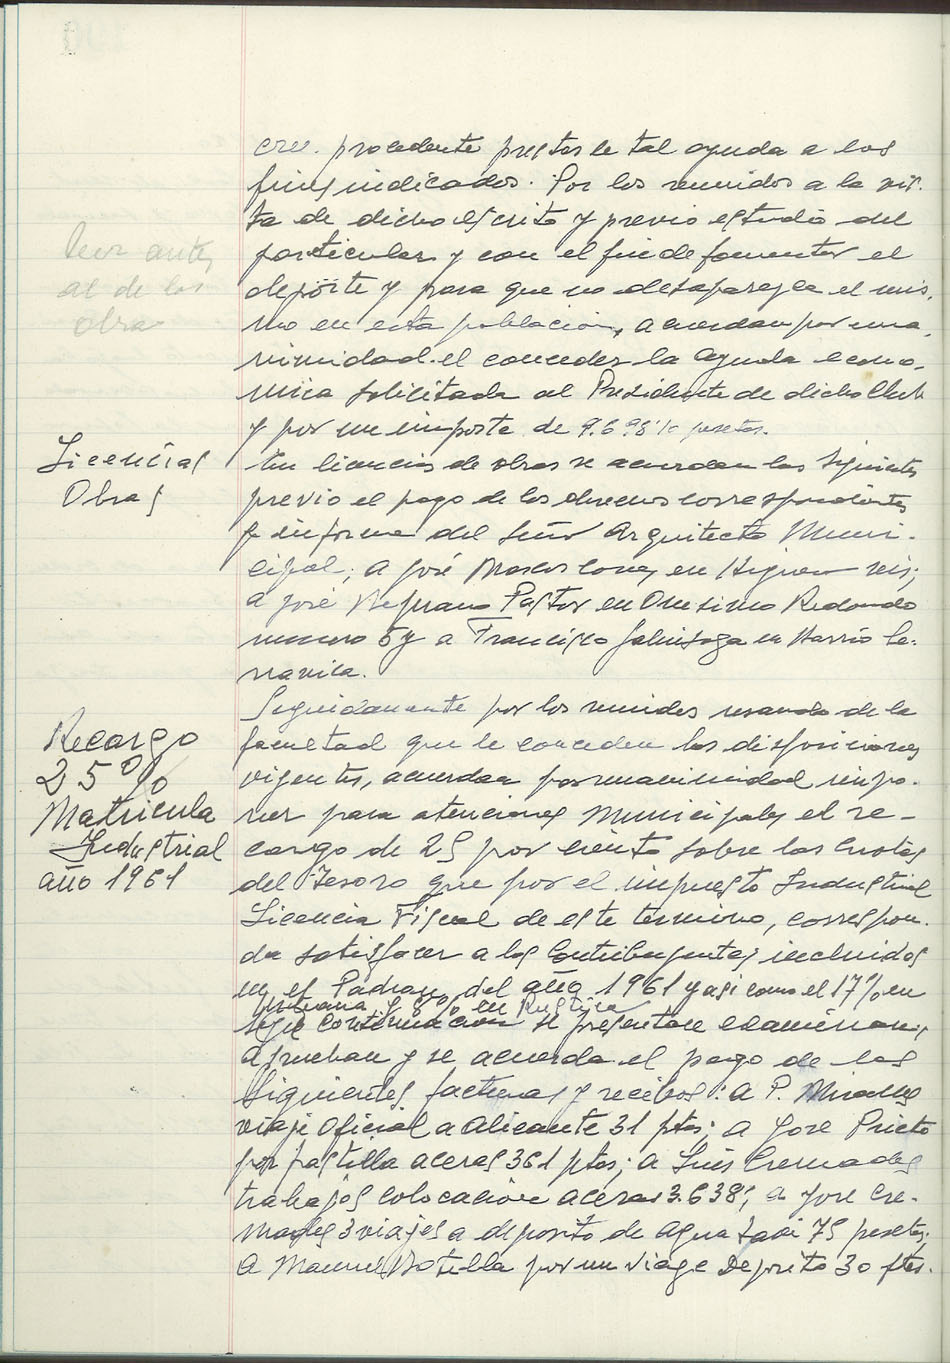 cree procedente prestarle tal ayuda a los
fines indicados. Por los reunidos a la vis-
ta de dicho escrito y previo estudio del
leer antes
particular y con el fin de fomentar el
al de las
deporte y para que no desaparezca el mis-
obras
mo en esta población, acuerdan por una-
nimidad el conceder la ayuda econo-
mica solicitada al Presidente de dicho Club
y por un importe de 9.698 pesetas.
Licencias
Obras
En licencias de obras se acuerdan las siguientes
previo el pago de los derechos correspondientes
e informe del Señor Arquitecto Muni-
cipal; a José en seis;
a José Pastor en Onesimo Redondo
numero 5 y a Francisco en Barrio
Seguidamente por los reunidos usando de la
Recargo
25%
Matricula
Industrial
año 1961
facultad que le conceden las disposiciones
vigentes, acuerdan por unanimidad impo-
ner para atenciones Municipales el re-
cargo de 25 por ciento sobre las cuotas
del Tesoro que por el impuesto Industrial
Licencia Fiscal de este termino, correspon-
da satisfacer a los Contribuyentes incluidos
en el Padron del año 1961 y asi como el 17% en
urbana y 8% en Rustica
A continuacion se presentan examinan,
aprueban y se acuerda el pago de las
siguientes facturas y recibos: a P.
viaje oficial a Alicante 31 ptas; a Jose Prieto
por pastilla aceras 361 ptas; a Luis Cremades
trabajos colocacion aceras 3.638; a Jose Cre-
mades 3 viajes a deposito de agua 75 pesetas.
a Manuel Botella por un viage Deposito 30 ptas.